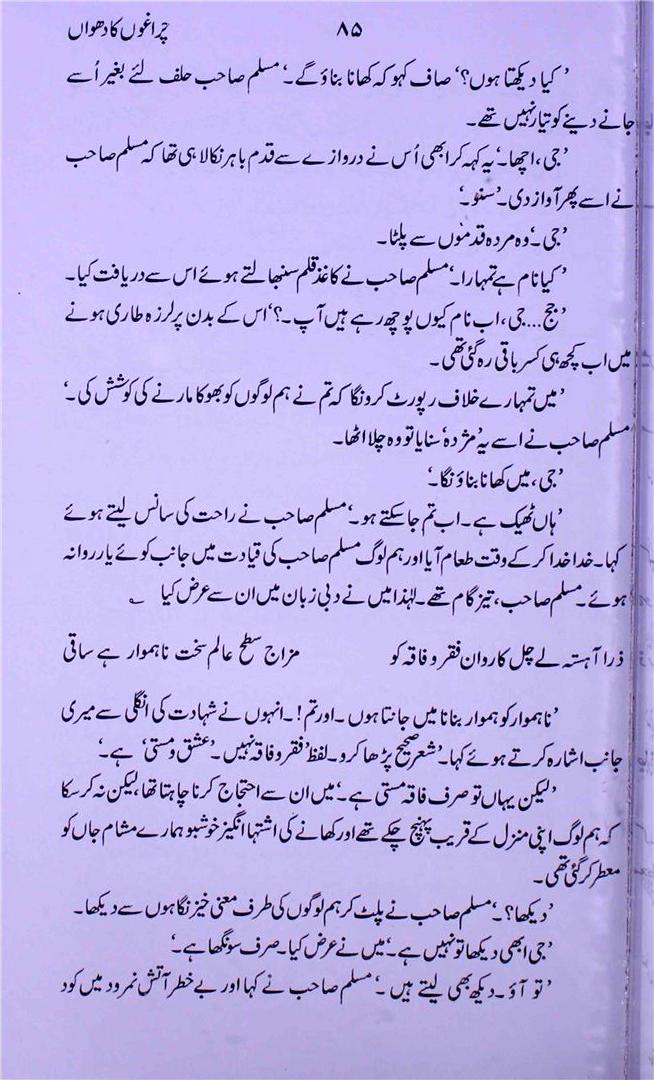 چراغوں کا دھواں ۸۵
’کیا دیکھتا ہوں؟‘ صاف کہو کہ کھانا بناؤ گے۔‘ مسلم صاحب حلف لئے بغیر اُسے
جانے دینے کو تیار نہیں تھے۔
’جی، اچھا۔‘ یہ کہہ کر ابھی اُس نے دروازے سے قدم باہر نکالا ہی تھا کہ مسلم صاحب
نے اسے پھر آواز دی۔ ’سنو۔‘
’جی۔‘ وہ مردہ قدموں سے پلٹا۔
’کیا نام ہے تمہارا۔‘ مسلم صاحب نے کاغذ قلم سنبھالتے ہوئے اس سے دریافت کیا۔
’جج...جی، اب نام کیوں پوچھ رہے ہیں آپ۔؟‘ اس کے بدن پر لرزہ طاری ہونے
میں اب کچھ ہی کسر باقی رہ گئی تھی۔
’میں تمہارے خلاف رپورٹ کرونگا کہ تم نے ہم لوگوں کو بھوکا مارنے کی کوشش کی۔‘
مسلم صاحب نے اسے یہ ’مژدہ‘ سنایا تو وہ چلا اٹھا۔
’جی، میں کھانا بناؤنگا۔‘
’ہاں ٹھیک ہے۔ اب تم جا سکتے ہو۔‘ مسلم صاحب نے راحت کی سانس لیتے ہوئے
کہا۔ خدا خدا کر کے وقت طعام آیا اور ہم لوگ مسلم صاحب کی قیادت میں جانب کوئے یار روانہ
ہوئے۔ مسلم صاحب، تیز گام تھے۔ لہٰذا میں نے دبی زبان میں ان سے عرض کیا ؎
ذرا آہستہ لے چل کاروان فقر و فاقہ کو مزاج سطح عالم سخت ناہموار ہے ساقی
’ناہموار کو ہموار بنانا میں جانتا ہوں۔ اور تم!۔ انہوں نے شہادت کی انگلی سے میری
جانب اشارہ کرتے ہوئے کہا۔ ’شعر صحیح پڑھا کرو۔ لفظ ’فقر و فاقہ نہیں۔ ’عشق و مستی‘ ہے۔‘
’لیکن یہاں تو صرف فاقہ مستی ہے۔‘ میں ان سے احتجاج کرنا چاہتا تھا، لیکن نہ کر سکا
کہ ہم لوگ اپنی منزل کے قریب پہنچ چکے تھے اور کھانے کی اشتہا انگیز خوشبو ہمارے مشام جاں کو
معطر کر گئی تھی۔
’دیکھا؟۔‘ مسلم صاحب نے پلٹ کر ہم لوگوں کی طرف معنی خیز نگاہوں سے دیکھا۔
’جی ابھی دیکھا تو نہیں ہے۔‘ میں نے عرض کیا۔ صرف سونگھا ہے۔‘
’تو آؤ۔ دیکھ بھی لیتے ہیں۔‘ مسلم صاحب نے کہا اور بے خطر آتش نمرود میں کود